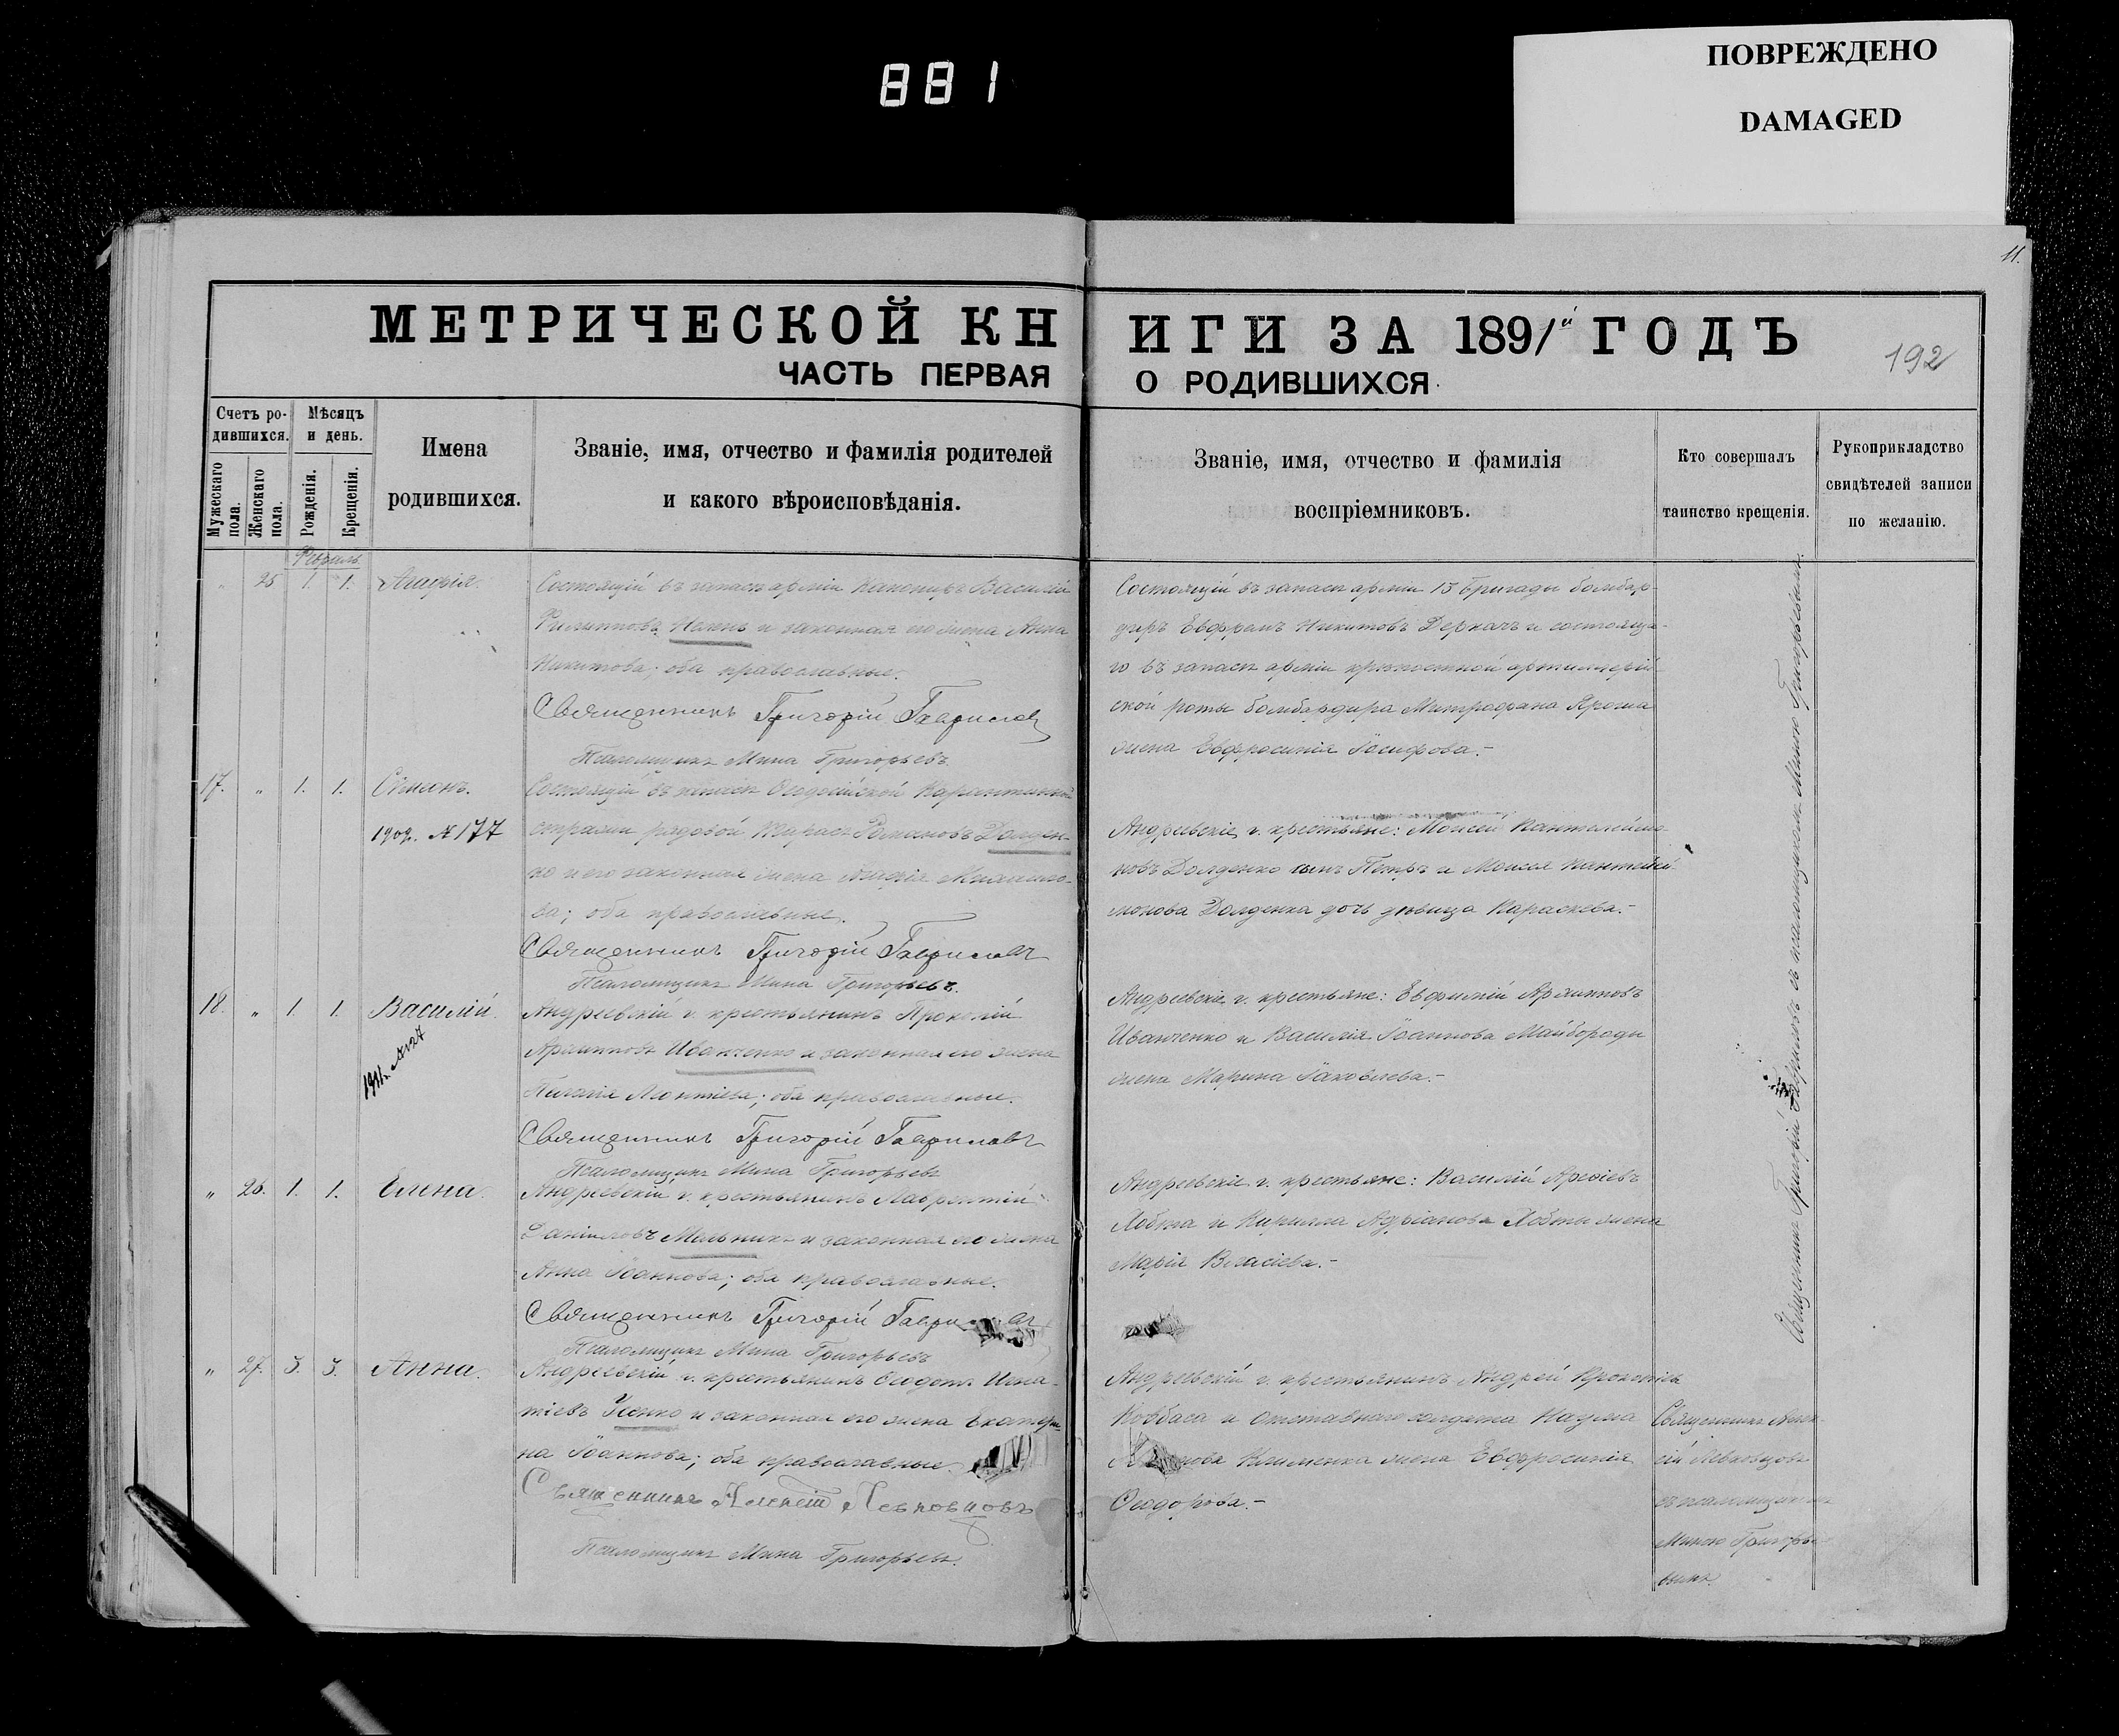 881
ПОВРЕЖДЕНО
DAMAGED
11.
МЕТРИЧЕСКОЙ КНИГИ ЗА 1891й ГОДЪ
192
ЧАСТЬ ПЕРВАЯ О РОДИВШИХСЯ.
Счетъ ро-
дившихся.
Мѣсяцъ
и день.
Мужескаго пола.
Женскаго пола.
Рожденія.
Крещенія.
Имена
родившихся.
Званіе, имя, отчество и фамилія родителей
и какого вѣроисповѣданія.
Званіе, имя, отчество и фамилія
воспріемниковъ.
Кто совершалъ
таинство крещенія.
Рукоприкладство
свидѣтелей записи
по желанію.
25 1. 1.
Состоящій въ запасѣ арміи Василій
Филипповъ и законная его жена Анна
Никитова; оба православные.
Священникъ Григорій Гавриловъ
Псаломщикъ Мина Григорьевъ
Состоящій въ запасѣ арміи 15 бригады бомбар-
диръ Евфремъ Никитовъ Деркачъ и состояща-
го въ запасѣ арміи крѣпостной артиллерій-
ской роты бомбардира Митрофана Яроша
жена Евфросинія Іосифова.-
17. „ 1. 1. Сѵмеонъ.
190 . N 177
Состоящій въ запасѣ Ѳеодосійской Карантинной
стражи рядовой Тарасъ Романовъ Долден-
ко и его законная жена
ва; оба православные.
Священникъ Григорій Гавриловъ
Псаломщикъ Мина Григорьевъ.
Андреевскіе г. крестьяне: Моисей
новъ Долденко сынъ Петръ и Моисея
монова Долденка дочь дѣвица Параскева.-
18. „ 1. 1. Василій.
1911. N 127
Андреевскій г. крестьянинъ Прокопій
Архиповъ Иванченко и законная его жена
оба православные.
Священникъ Григорій Гавриловъ
Псаломщикъ Мина Григорьевъ
Андреевскіе г. крестьяне: Евфимій Архиповъ
Иванченко и Василія Іоаннова Майбороди
жена Марина Іаковлева.-
„ 26. 1. 1. Елена.
Андреевскій г. крестьянинъ Лаврентій
Даніиловъ Мельникъ и законная его жена
Анна Іоаннова; оба православные.
Священникъ Григорій Гавриловъ
Псаломщикъ Мина Григорьевъ
Андреевскіе г. крестьяне: Василій
и Кирилла Адріанова жена
Марія Власіева.-
Священникъ Григорій Гавриловъ съ псаломщикомъ Миною Григорьевымъ.
„ 27. 3. 3. Анна.
Андреевскій г. крестьянинъ Ѳеодотъ Игна-
тіевъ Усенко и законная его жена Екатери-
на Іоаннова; оба православные.
Священникъ Алексій Левковцовъ
Псаломщикъ Мина Григорьевъ.
Андреевскій г. крестьянинъ Андрей Прокопіевъ
Ковбаса и отставнаго солдата Наума
Клименка жена Евфросинія
Ѳеодорова.-
Священникъ Алек-
сій Левковцовъ
съ псаломщикомъ
Миною Григорье-
вымъ.